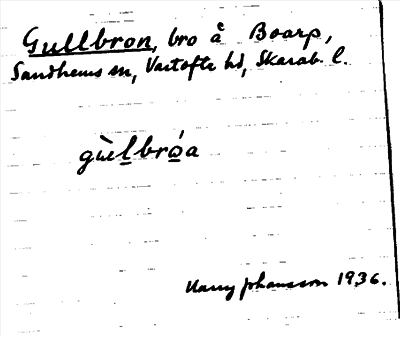 Gullbron, bro å Boarp,
Sandhems sn, Vartofta hd, Skarab. l.
gùelbróa
Harry Johansson 1936.